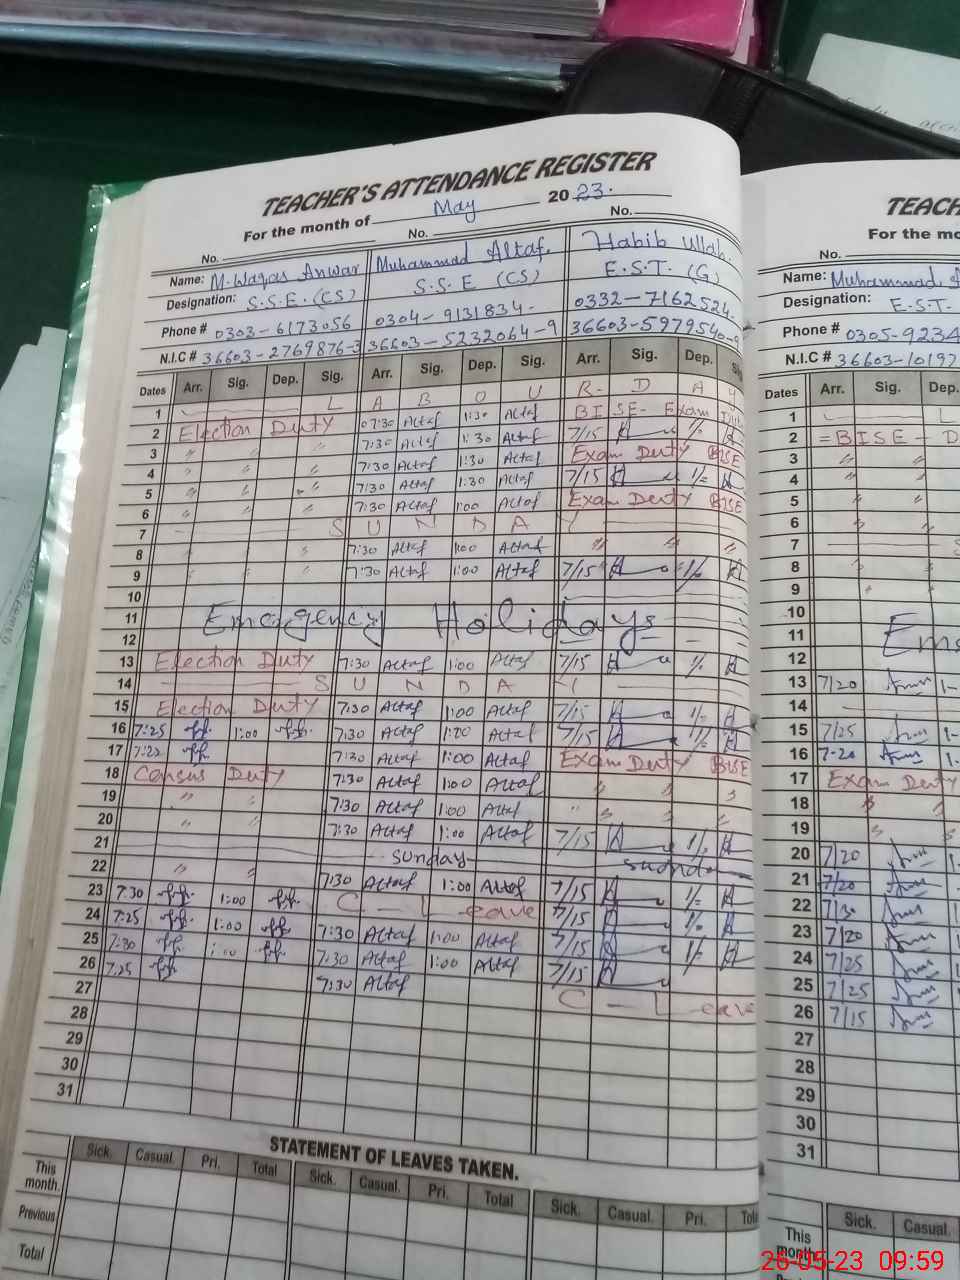 TEACHER'S ATTENDANCE REGISTER
For the month of May 2023.
No. No. No.
Name: M. Waqas Anwar Muhammad Altaf. Habib Ullah.
Designation: S.S.E. (CS) S.S.E (CS) E.S.T. (G)
Phone # 0303-6173056 0304-9131834- 0332-7162524-
N.I.C # 36603-2769876-3 36603-5232064-9 36603-5979540-9
Dates Arr. Sig. Dep. Sig. Arr. Sig. Dep. Sig. Arr. Sig. Dep. Sig
1 L A B O U R- D A Y
2 Election Duty 07:30 Altaf 1:30 Altaf BISE- Exam Duty
3 " " " 7:30 Altaf 1:30 Altaf 7/15 1/=
4 " " " 7:30 Altaf 1:30 Altaf Exam Duty BISE
5 " " " 7:30 Altaf 1:30 Altaf 7/15 1/=
6 " " " 7:30 Altaf 1:00 Altaf Exam Duty BISE
7 S U N D A Y
8 " " " 7:30 Altaf 1:00 Altaf " " "
9 " " " 7:30 Altaf 1:00 Altaf 7/15 1/=
10
11 Emergency Holidays
12
13 Election Duty 7:30 Altaf 1:00 Altaf 7/15 1/=
14 S U N D A Y
15 Election Duty 7:30 Altaf 1:00 Altaf 7/15 1/=
16 7:25 1:00 7:30 Altaf 1:00 Altaf 7/15 1/=
17 7:25 7:30 Altaf 1:00 Altaf Exam Duty BISE
18 Census Duty 7:30 Altaf 1:00 Altaf " " "
19 " " 7:30 Altaf 1:00 Altaf " " "
20 " " 7:30 Altaf 1:00 Altaf 7/15 1/=
21 Sunday Sunda
22 " " 7:30 Altaf 1:00 Altaf 7/15 1/=
23 7:30 1:00 C - Leave 7/15 1/=
24 7:25 1:00 7:30 Altaf 1:00 Altaf 7/15 1/=
25 7:30 1:00 7:30 Altaf 1:00 Altaf 7/15
26 7:25 7:30 Altaf C - Leave
27
28
29
30
31
STATEMENT OF LEAVES TAKEN.
Sick. Casual. Pri. Total Sick. Casual. Pri. Total Sick. Casual. Pri. Tot
This month.
Previous
Total
TEACH
For the mo
No.
Name: Muhammad
Designation: E.S.T.
Phone # 0305-9234
N.I.C # 36603-10197
Dates Arr. Sig. Dep.
1 L
2 =BISE-D
3 " "
4 " "
5 " "
6 " "
7 S
8 " "
9 " "
10
11 Eme
12
13 7/20 1-
14
15 7/25 1-
16 7-20 1-
17 Exam Duty
18 " "
19 " "
20 7/20 1-
21 7/20
22 7/30
23 7/20
24 7/25
25 7/25
26 7/15
27
28
29
30
31
Sick. Casual
This month
26-05-23 09:59